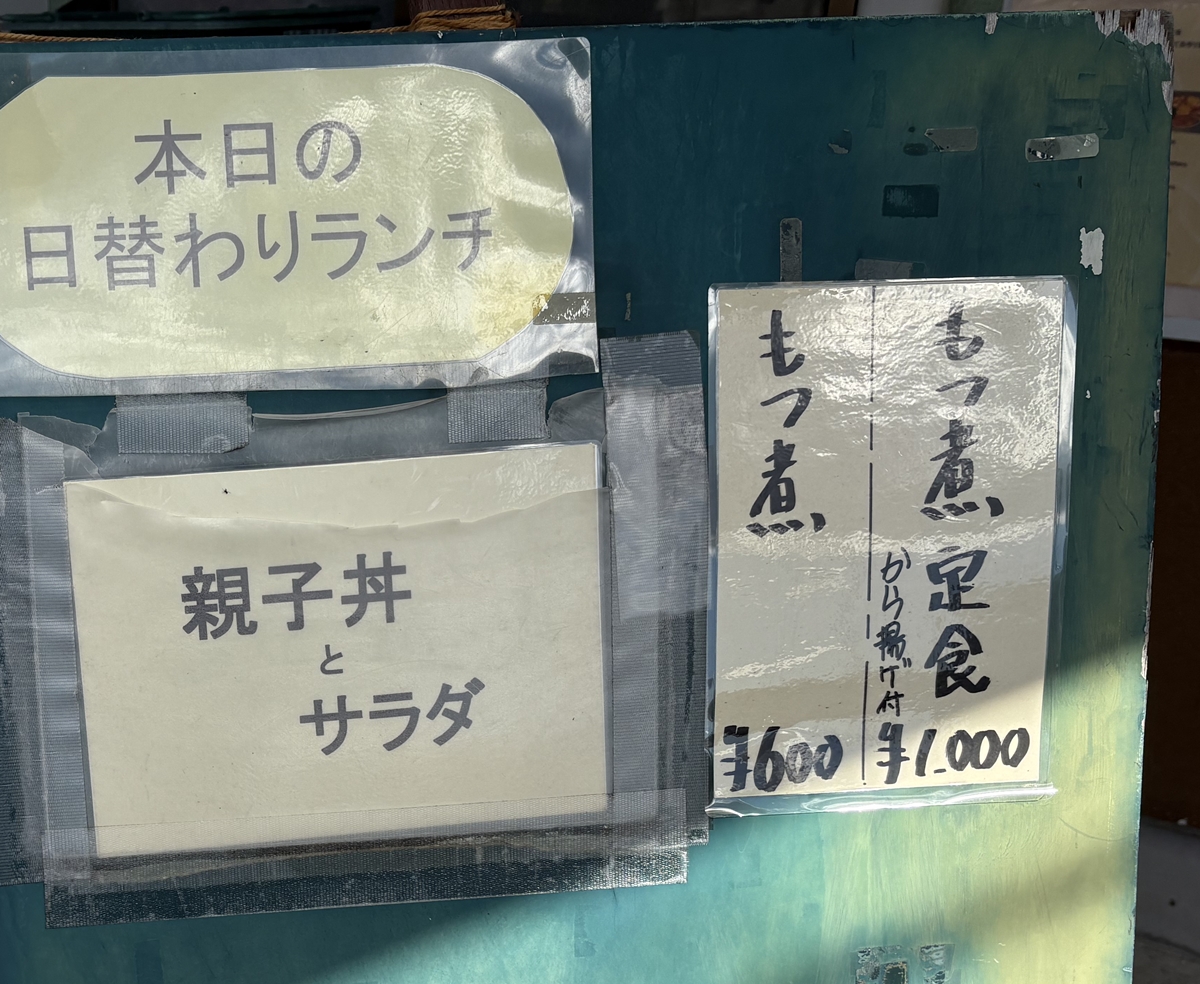 本日の
日替わりランチ
親子丼
と
サラダ
もつ煮定食
から揚げ付
¥1.000
もつ煮
¥600